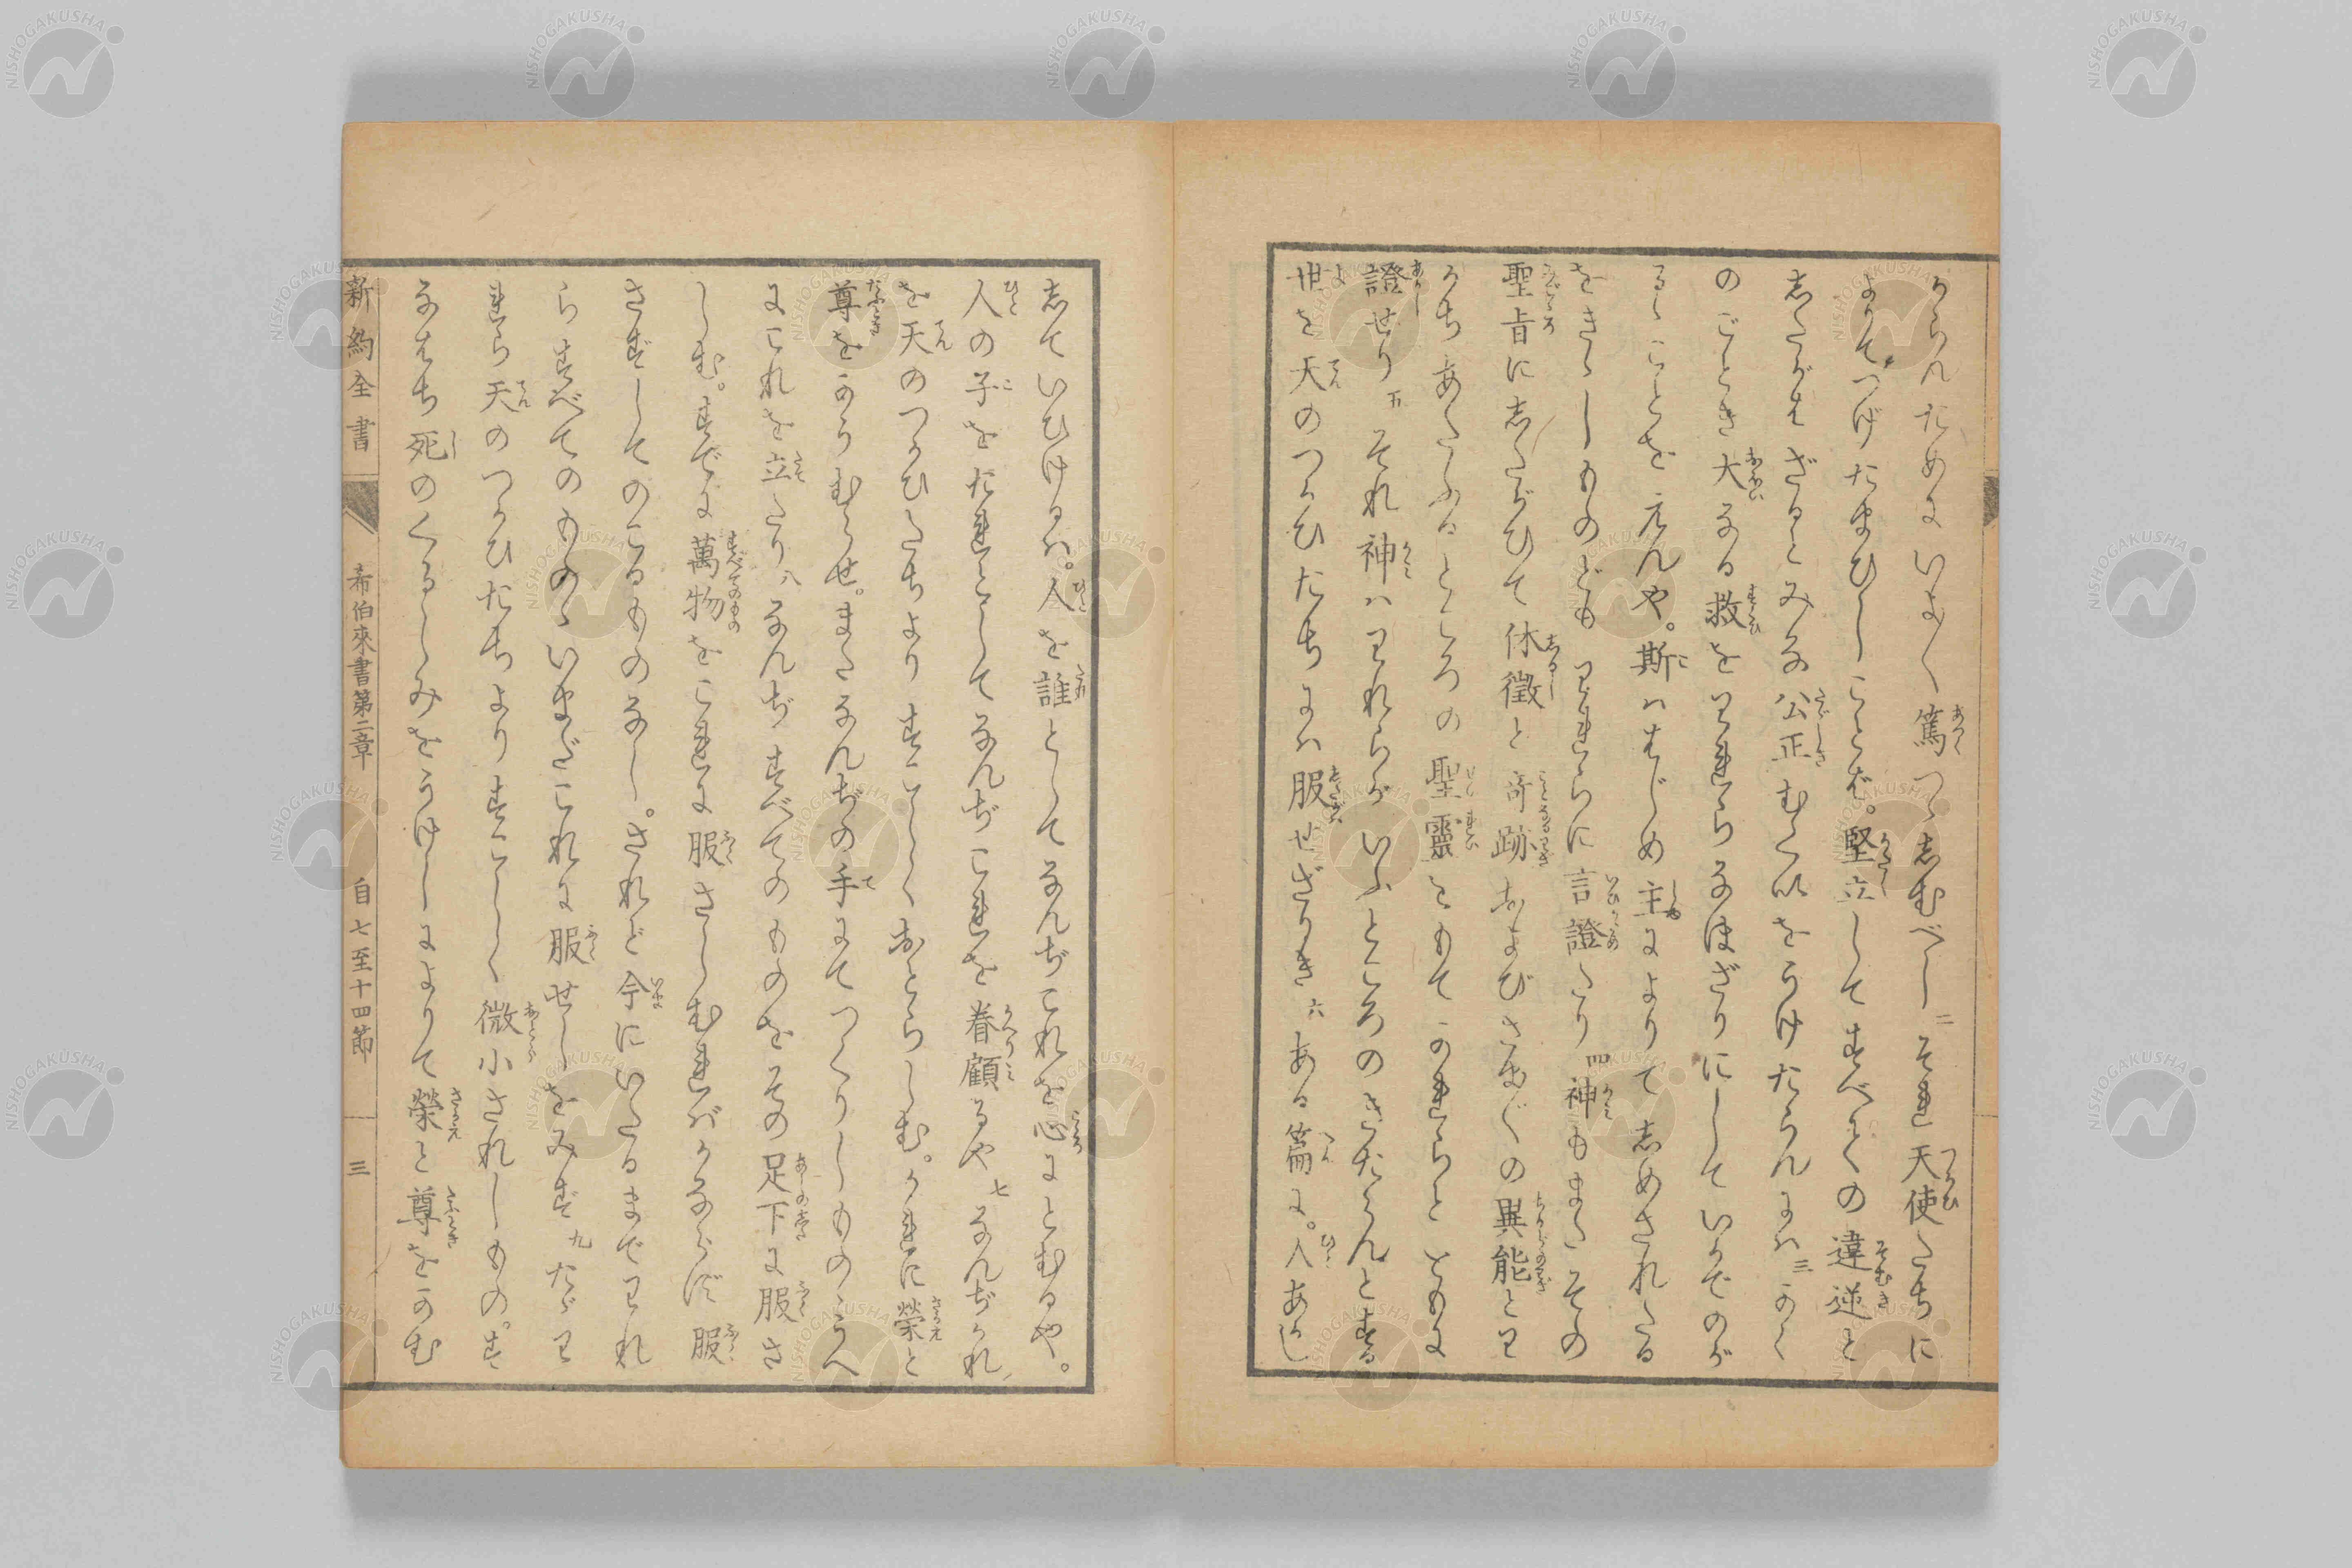 からんためにいよ〱篤つゝしむべし二それ天使たちに
よりてつげたまひしことば。堅立してすべての違逆と
したがはざるとみな公正むくいをうけたらんには三かく
のごとき大なる救をわれらなほざりにしていかでのが
るゝことを元んや。斯ハはじめ主によりてしめされたる
をきゝしものどもわれらに言證たり四神もまたその
聖旨にしたがひて休徴と奇跡およびさま〲の異能とわ
かちあたふるところの聖靈をもてかれらとともに
證せり五それ神ハわれらがいふところのきたらんとする
世を天のつかひたちにハ服せざりき六ある篇に。人あかし
していひけるハ。人を誰としてなんぢこれを心にとむるや。
人の子をたれとしてなんぢこれを眷顧るや七なんぢかれ
を天のつかひたちよりすこしくおとらしむ。かれに榮と
尊をかうむらせ。またなんぢの手にてつくりしものゝうへ
にこれを立たり八なんぢすべてのものをその足下に服さ
しむ。すでに萬物をこれに服さしむればかならず服
さずしてのこるものなし。されど今にいたるまでわれ
らすべてのものゝいまだこれに服せしをみず九たゞわ
れら天のつかひたちよりすこしく微小されしもの。す
なはち死のくるしみをうけしによりて榮と尊をかむ
新約全書
希伯來書第二章
自七至十四節
三